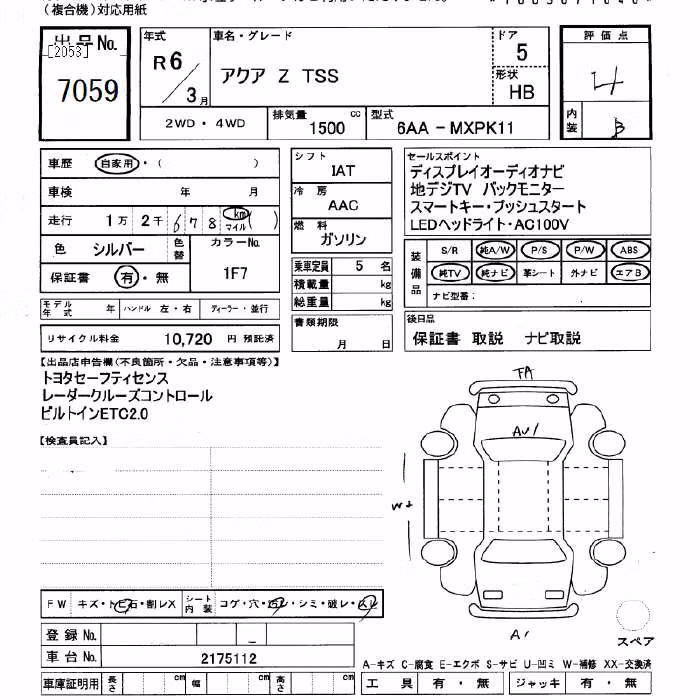 (複合機)対応用紙
出品No.
[2053]
7059
年式
R6
3月
車名・グレード
アクア Z TSS
ドア
5
形状
HB
評価点
4
内装
B
2WD・4WD
排気量
1500
cc
型式
6AA-MXPK11
車歴
自家用・( )
車検 年 月
走行 1万 2千 678 km
マイル
( )
色 シルバー
色替
カラーNo.
1F7
保証書 有・無
モデル年式 年
ハンドル 左・右
ディーラー・並行
リサイクル料金 10,720 円 預託済
シフト
IAT
冷房
AAC
燃料
ガソリン
乗車定員 5 名
積載量 kg
総重量 kg
書類期限
月 日
セールスポイント
ディスプレイオーディオナビ
地デジTV バックモニター
スマートキー・プッシュスタート
LEDヘッドライト・AC100V
装備品
S/R 純A/W P/S P/W ABS
純TV 純ナビ 革シート 外ナビ エアB
ナビ型番:
後日品
保証書 取説 ナビ取説
【出品店申告欄(不良箇所・欠品・注意事項等)】
トヨタセーフティセンス
レーダークルーズコントロール
ビルトインETC2.0
【検査員記入】
FW キズ・トビ石・割レX
シート内装
コゲ・穴・汚レ・シミ・破レ・スレ
登録No.
車台No. 2175112
車庫証明用 長さ cm 幅 cm 高さ cm
TA
AU1
W2
A1
スペア
A-キズ C-腐食 E-エクボ S-サビ U-凹ミ W-補修 XX-交換済
工具 有・無 ジャッキ 有・無